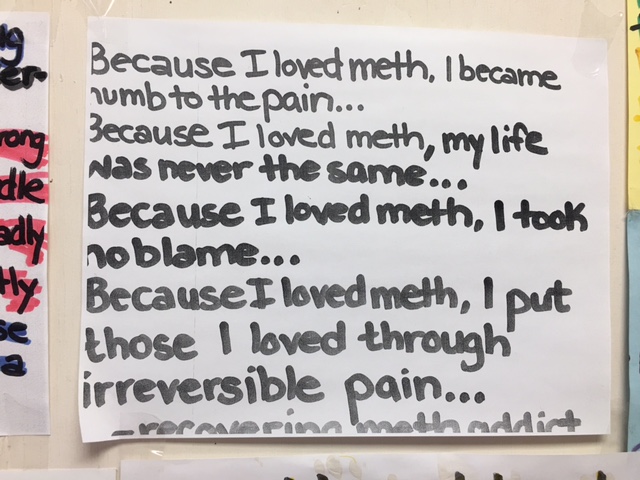 ng
er-
Because I loved meth, I became
numb to the pain...
Because I loved meth, my life
was never the same...
Because I loved meth, I took
no blame...
Because I loved meth, I put
those I loved through
irreversible pain...
-recovering meth addict
rong
dle
adly
tly
se
a